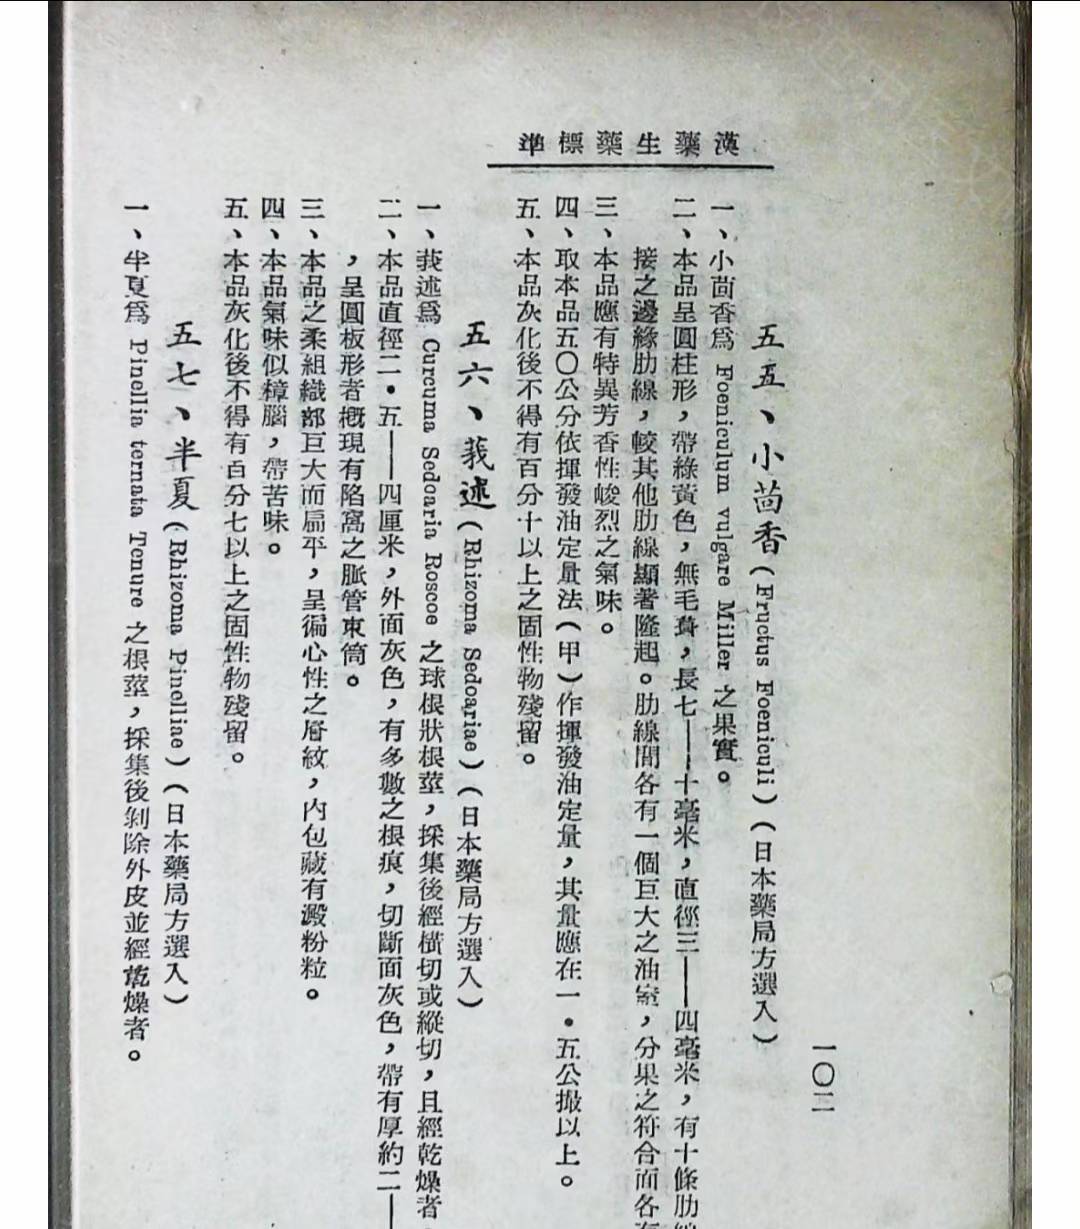 漢藥生藥標準
一〇二
五五、小茴香(Fructus Foeniculi)(日本藥局方選入)
一、小茴香爲 Foeniculum vulgare Miller 之果實。
二、本品呈圓柱形，帶綠黃色，無毛茸，長七——十毫米，直徑三——四毫米，有十條肋
接之邊緣肋線，較其他肋線顯著隆起。肋線間各有一個巨大之油室，分果之符合面各
三、本品應有特異芳香性峻烈之氣味。
四、取本品五〇公分依揮發油定量法(甲)作揮發油定量，其量應在一・五公撮以上。
五、本品灰化後不得有百分十以上之固性物殘留。
五六、莪述(Rhizoma Sedoariae)(日本藥局方選入)
一、莪述爲 Curcuma Sedoaria Roscoe 之球根狀根莖，採集後經橫切或縱切，且經乾燥者
二、本品直徑二・五——四厘米，外面灰色，有多數之根痕，切斷面灰色，帶有厚約二—
，呈圓板形者概現有陷窩之脈管束筒。
三、本品之柔組織部巨大而扁平，呈徧心性之層紋，內包藏有澱粉粒。
四、本品氣味似樟腦，帶苦味。
五、本品灰化後不得有百分七以上之固性物殘留。
五七、半夏(Rhizoma Pinelliae)(日本藥局方選入)
一、半夏爲 Pinellia ternata Tenure 之根莖，採集後剝除外皮並經乾燥者。